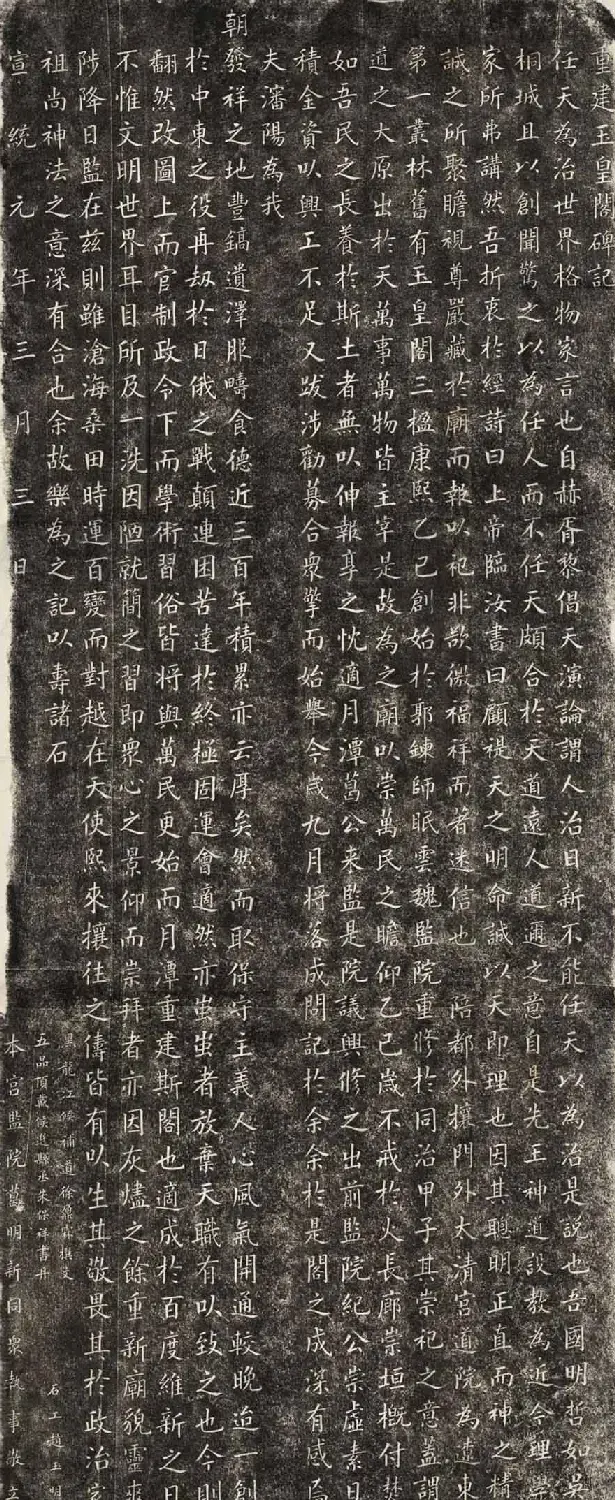 重建玉皇閣碑記
任天為治世界格物家言也自赫胥黎倡天演論謂人治日新不能任天以為治是說也吾國明哲如吳
桐城且以創聞驚之以為任人而不任天頗合於天道遠人道邇之意自是先王神道設教為近今理學
家所弗講然吾折衷於經詩曰上帝臨汝書曰顧諟天之明命誠以天即理也因其聰明正直而神之精
誠之所聚瞻視尊嚴藏於廟而報以祀非欲徼福祥而著迷信也 陪都外攘門外太清宮道院為遼東
第一叢林舊有玉皇閣三楹康熙乙巳創始於郭鍊師眠雲魏監院重修於同治甲子其崇祀之意蓋謂
道之大原出於天萬事萬物皆主宰是故為之廟以崇萬民之瞻仰乙巳歲不戒於火長廊崇垣概付焚
如吾民之長養於斯土者無以伸報享之忱適月潭葛公來監是院議興修之出前監院紀公崇虛素日
積金資以興工不足又跋涉勸募合眾擎而始舉今歲九月將落成問記於余余於是閣之成深有感焉
夫瀋陽為我
朝發祥之地豐鎬遺澤服疇食德近三百年積累亦云厚矣然而耴保守主義人心風氣開通較晚迨一創
於中東之役再劫於日俄之戰顛連困苦達於終極固運會適然亦蚩蚩者放棄天職有以致之也今則
翻然改圖上而官制政令下而學術習俗皆將與萬民更始而月潭重建斯閣也適成於百度維新之日
不惟文明世界耳目所及一洗因陋就簡之習即眾心之景仰而崇拜者亦因灰燼之餘重新廟貌靈爽
陟降日監在茲則雖滄海桑田時運百變而對越在天使熙來攘往之儔皆有以生其敬畏其於政治家
祖尚神法之意深有合也余故樂為之記以壽諸石
黑龍江候補道徐鼐霖撰文
五品頂戴候選縣丞朱保祥書丹
石工趙玉明
宣統元年三月三日
本宮監院葛明新同眾執事敬立